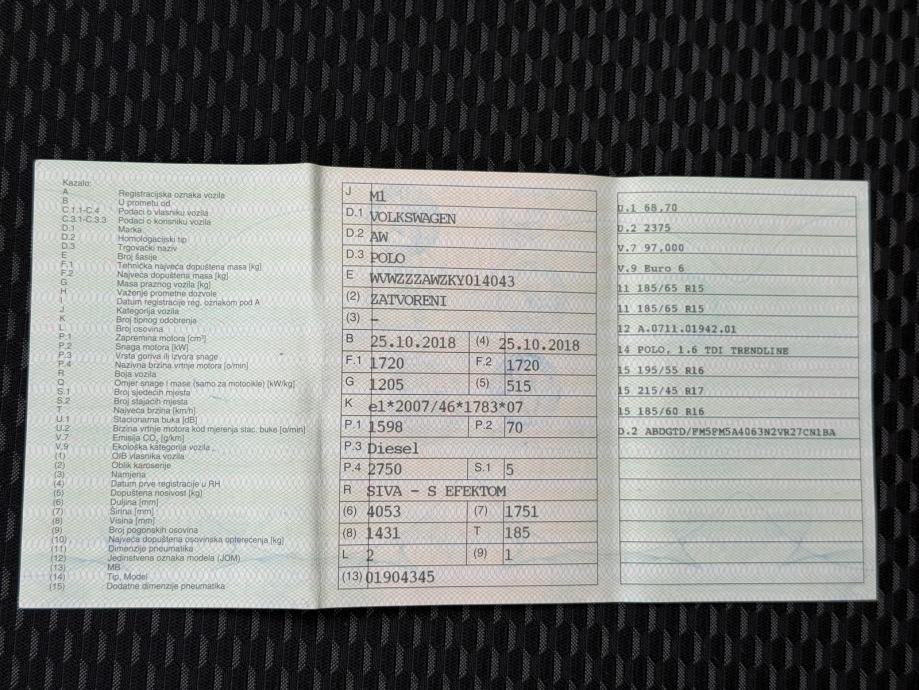 Kazalo:
A Registracijska oznaka vozila
B U prometu od
C.1.1-C.4 Podaci o vlasniku vozila
C.3.1-C.3.3 Podaci o korisniku vozila
D.1 Marka
D.2 Homologacijski tip
D.3 Trgovački naziv
E Broj šasije
F.1 Tehnička najveća dopuštena masa [kg]
F.2 Najveća dopuštena masa [kg]
G Masa praznog vozila [kg]
H Važenje prometne dozvole
I Datum registracije reg. oznakom pod A
J Kategorija vozila
K Broj tipnog odobrenja
L Broj osovina
P.1 Zapremina motora [cm³]
P.2 Snaga motora [kW]
P.3 Vrsta goriva ili izvora snage
P.4 Nazivna brzina vrtnje motora [o/min]
R Boja vozila
Q Omjer snage i mase (samo za motocikle) [kW/kg]
S.1 Broj sjedećih mjesta
S.2 Broj stajaćih mjesta
T Najveća brzina [km/h]
U.1 Stacionarna buka [dB]
U.2 Brzina vrtnje motora kod mjerenja stac. buke [o/min]
V.7 Emisija CO₂ [g/km]
V.9 Ekološka kategorija vozila
(1) OIB vlasnika vozila
(2) Oblik karoserije
(3) Namjena
(4) Datum prve registracije u RH
(5) Dopuštena nosivost [kg]
(6) Duljina [mm]
(7) Širina [mm]
(8) Visina [mm]
(9) Broj pogonskih osovina
(10) Najveća dopuštena osovinska opterećenja [kg]
(11) Dimenzije pneumatika
(12) Jedinstvena oznaka modela (JOM)
(13) MB
(14) Tip, Model
(15) Dodatne dimenzije pneumatika
J M1
D.1 VOLKSWAGEN
D.2 AW
D.3 POLO
E WVWZZZAWZKY014043
(2) ZATVORENI
(3) –
B 25.10.2018 (4) 25.10.2018
F.1 1720 F.2 1720
G 1205 (5) 515
K e1*2007/46*1783*07
P.1 1598 P.2 70
P.3 Diesel
P.4 2750 S.1 5
R SIVA - S EFEKTOM
(6) 4053 (7) 1751
(8) 1431 T 185
L 2 (9) 1
(13) 01904345
U.1 68,70
U.2 2375
V.7 97,000
V.9 Euro 6
11 185/65 R15
11 185/65 R15
12 A.0711.01942.01
14 POLO, 1.6 TDI TRENDLINE
15 195/55 R16
15 215/45 R17
15 185/60 R16
D.2 ABDGTD/FM5FM5A4063N2VR27CN1BA